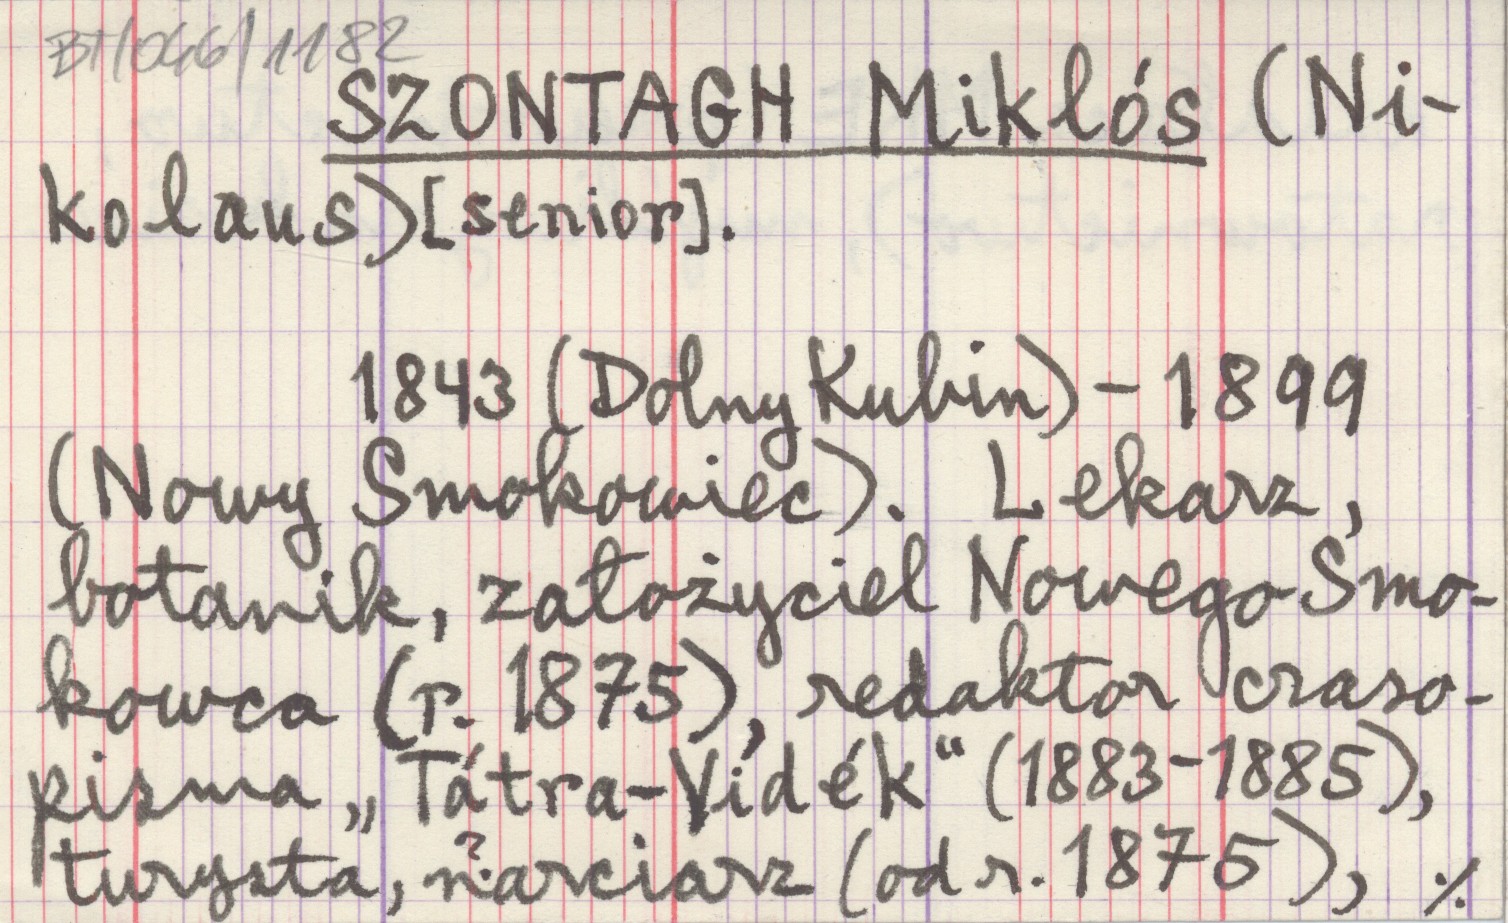 BT/046/1182
SZONTAGH Miklós (Ni-
kolaus) [senior].
1843 (Dolny Kubin) – 1899
(Nowy Smokowiec). Lekarz,
botanik, założyciel Nowego Smo-
kowca (r. 1875), redaktor czaso-
pisma „Tátra-Vidék“ (1883-1885),
turysta, ?narciarz (od r. 1875), ./.